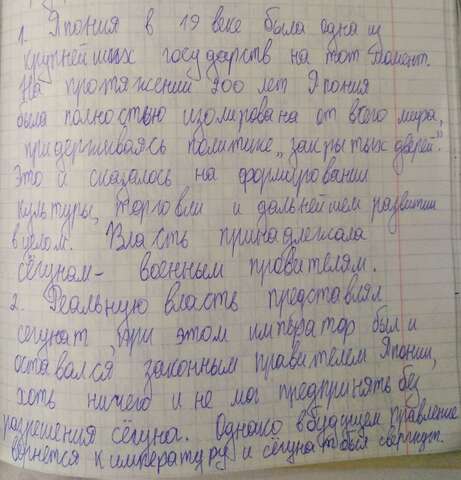 1. Япония в 19 веке была одна из
крупнейших государств на тот момент.
На протяжении 200 лет Япония
была полностью изолирована от всего мира,
придерживаясь политике „закрытых дверей".
Это и сказалось на формировании
культуры, торговли и дальнейшем развитии
в целом. Власть принадлежала
сёгунам – военным правителям.
2. Реальную власть представлял
сегунат, при этом император был и
оставался законным правителем Японии,
хоть ничего и не мог предпринять без
разрешения сёгуна. Однако в будущем правление
вернётся к императору и сёгунат был свергнут.